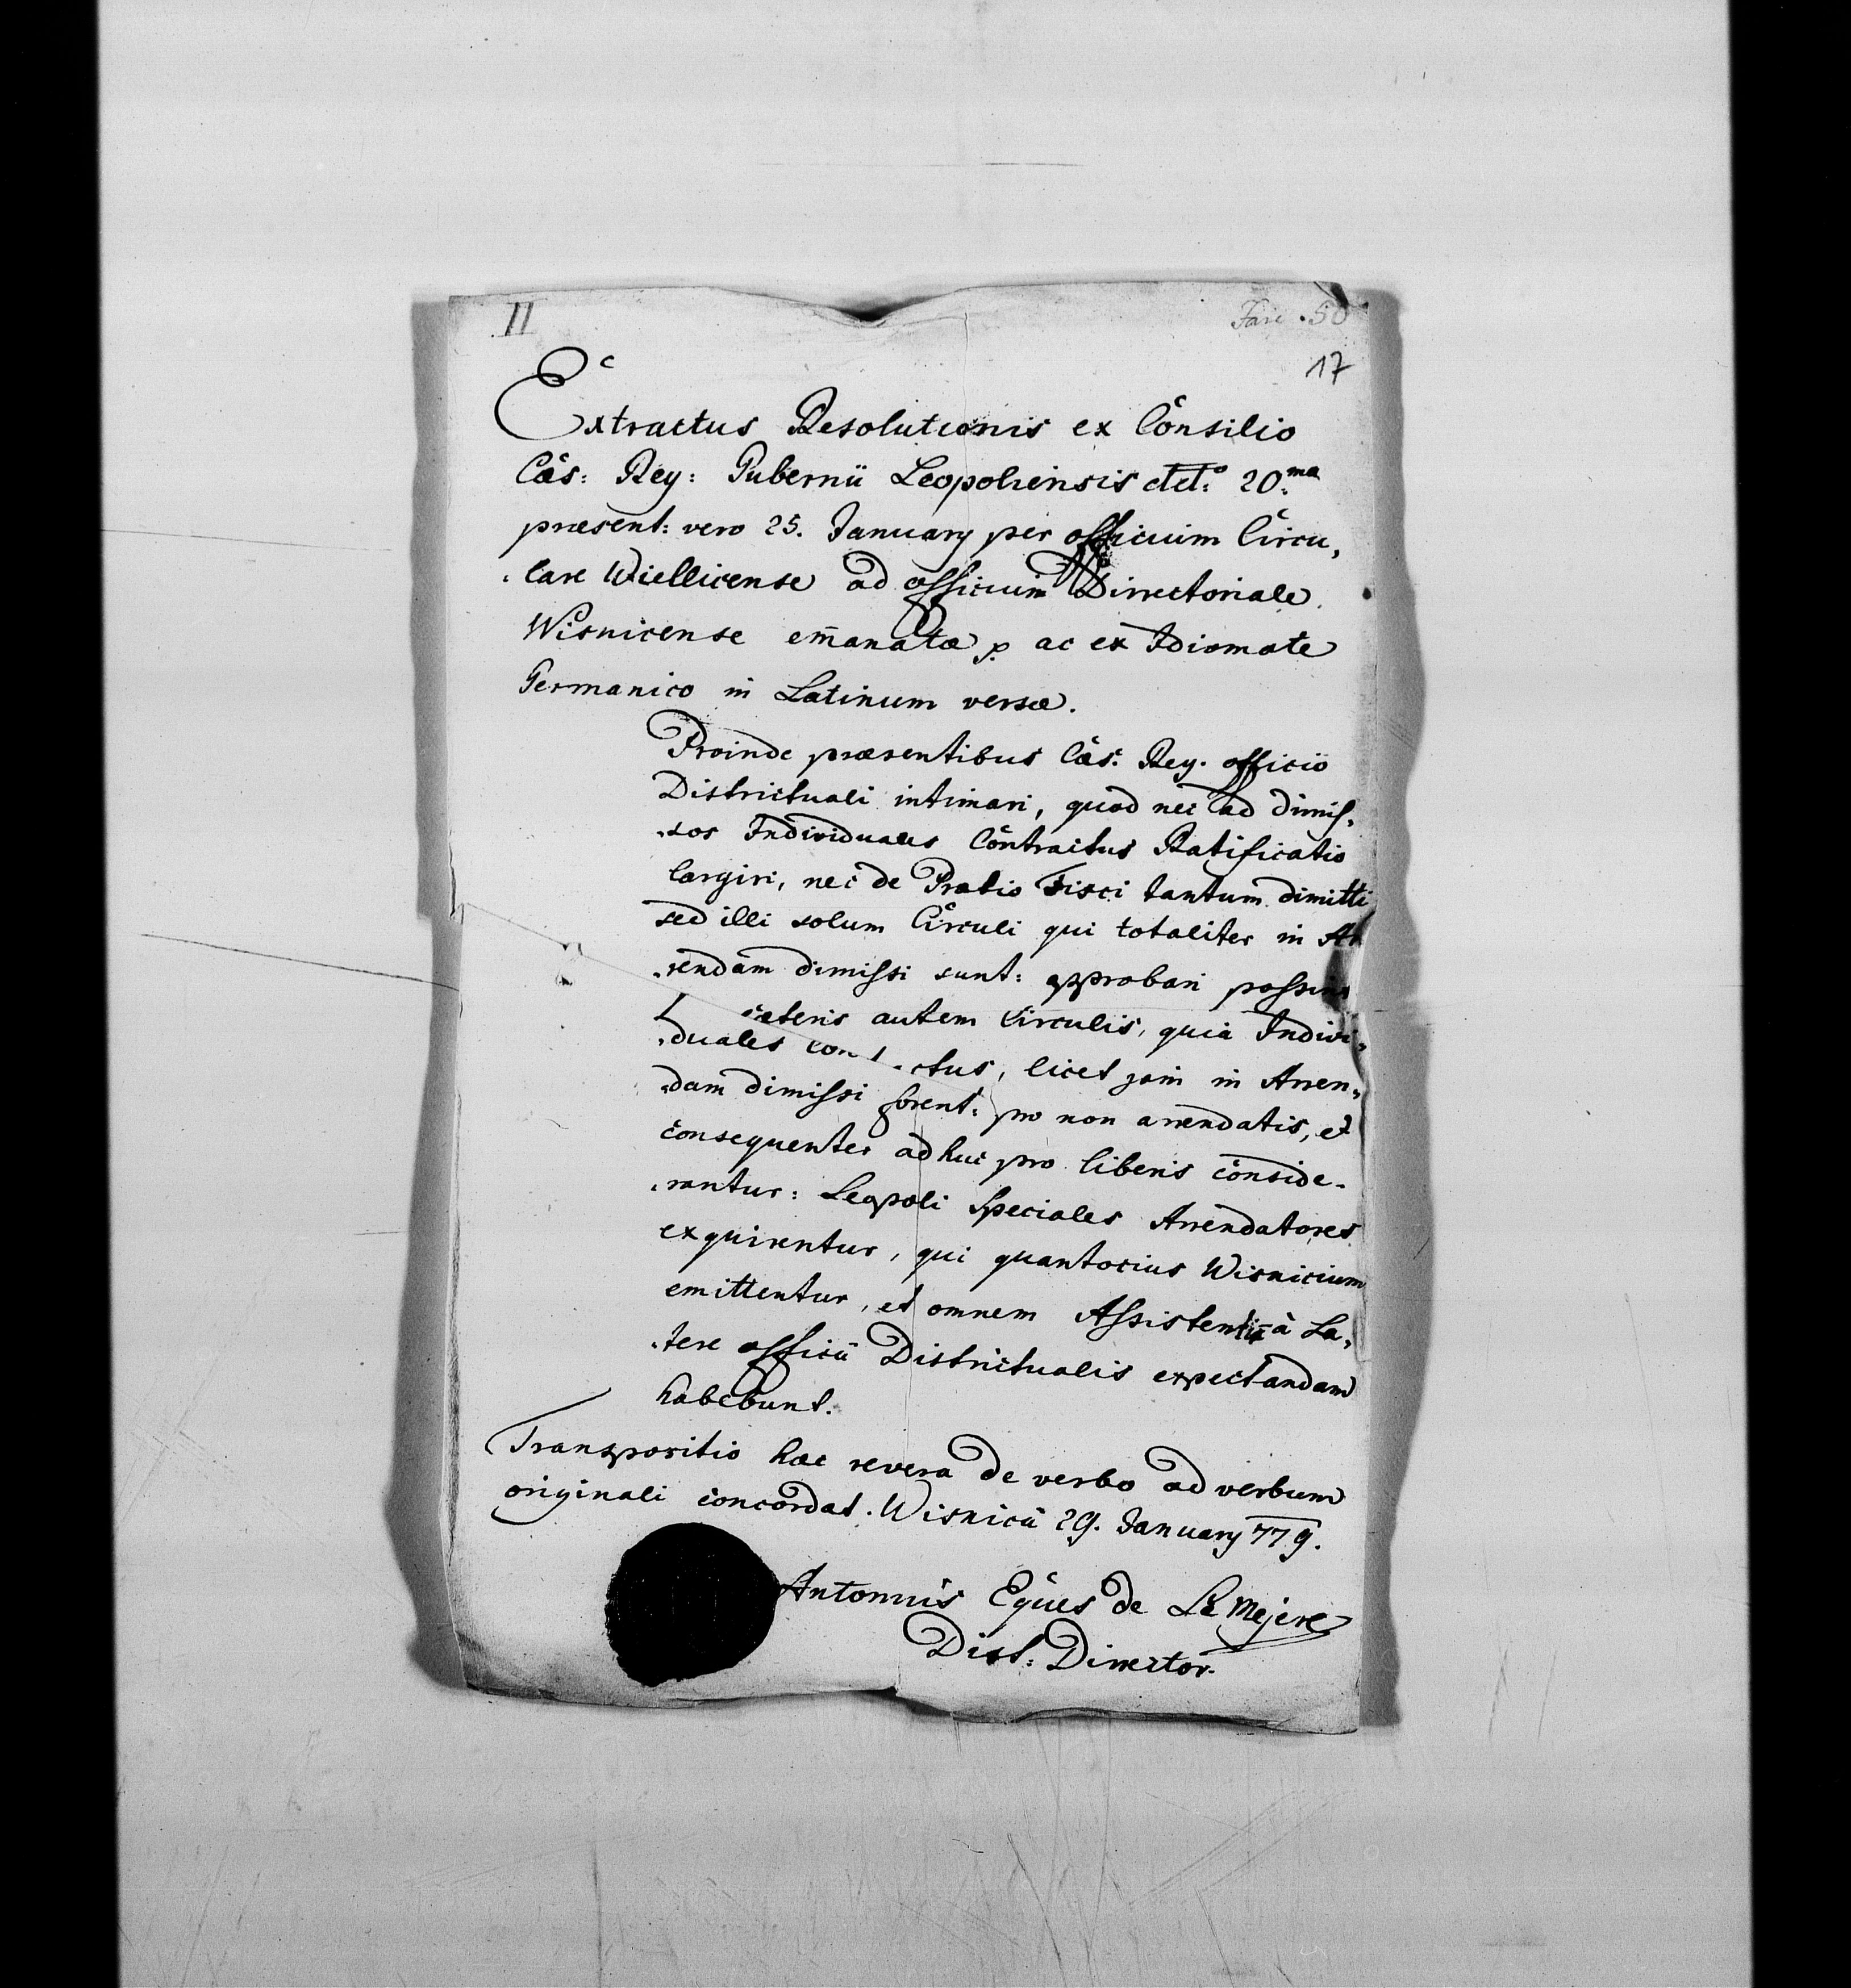 II
Fasc. 50
17
Extractus Resolutionis ex Consilio
Cæs: Reg: Gubernii Leopoliensis ddto: 20.ma
præsent: vero 25. January per officium Circu,
,lare Wiellicense ad officium Directoriale
Wisnicense em̄anatæ p. ac ex Idiomate
Germanico in Latinum versæ.
Proinde præsentibus Cæs: Reg. officio
Districtuali intimari, quod nec ad dimis,
,sos Individuales Contractus Ratificatio
largiri, nec de Prætio Fisci tantum dimitti
sed illi solum Circuli qui totaliter in Ar
,rendam dimissi sunt: approbari possint
cæteris autem Circulis, quia Indivi,
,duales con ctus, licet jam in Arren,
,dam dimissi forent: pro non arrendatis, et
consequenter adhuc pro liberis conside,
,rantur: Leopoli Speciales Arrendatores
exquirentur, qui quantocius Wisnicium
emittentur, et omnem Assistentiā à La,
,tere officii Districtualis expectandam
habebunt.
Transpositio hæc revera de verbo ad verbum
originali concordat. Wisnicii 29. January 779.
Antonius Eques de Le Mejere
Dist: Director.